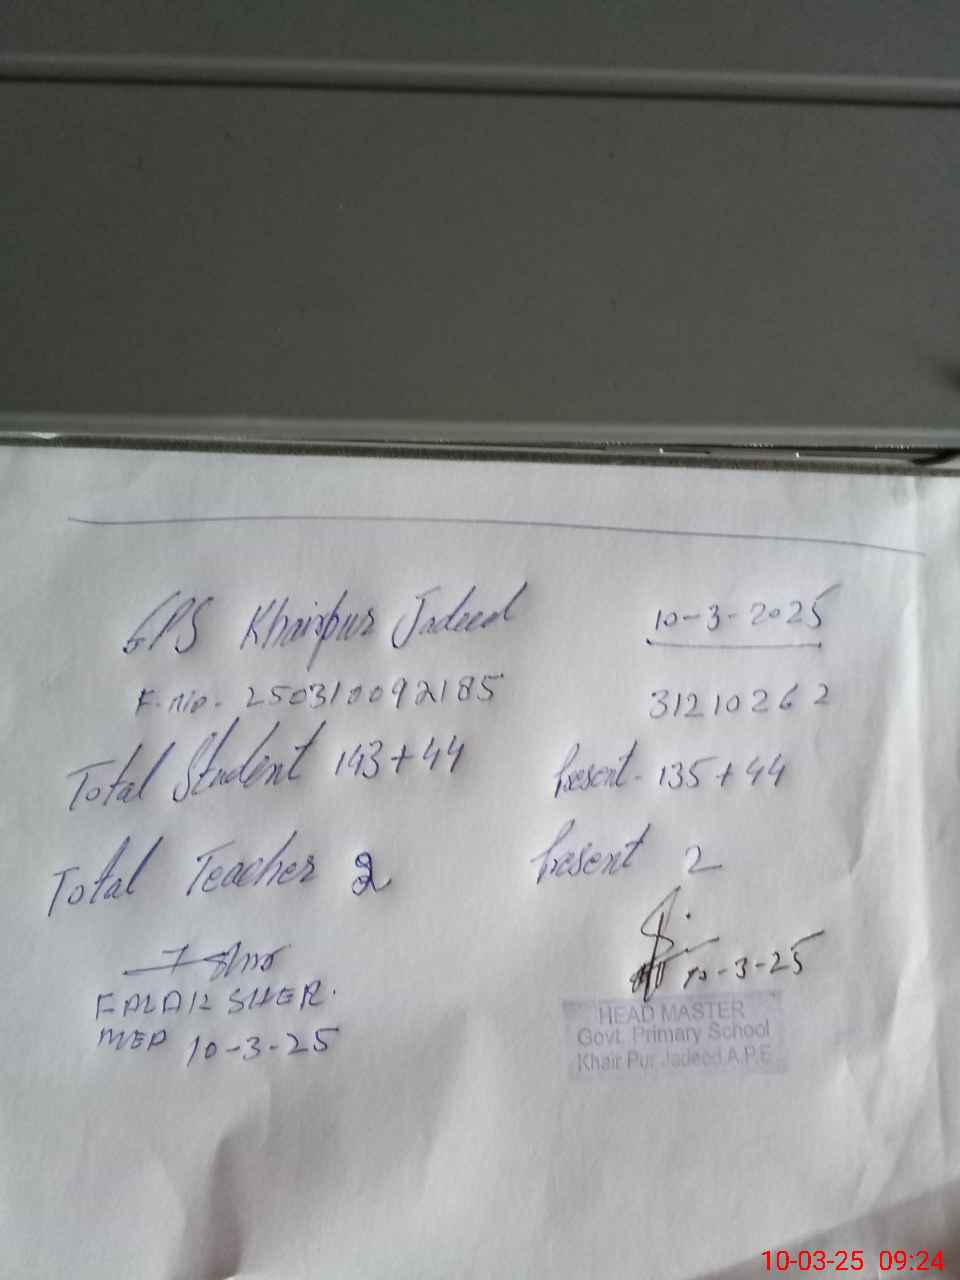 GPS Khairpur Jadeed 10-3-2025
F.No. 250310092185 31210262
Total Student 143+44 Present - 135+44
Total Teacher 2 Present 2
FALAK SHER.
MEA 10-3-25
10-3-25
HEAD MASTER
Govt. Primary School
Khair Pur Jadeed A.P.E
10-03-25 09:24